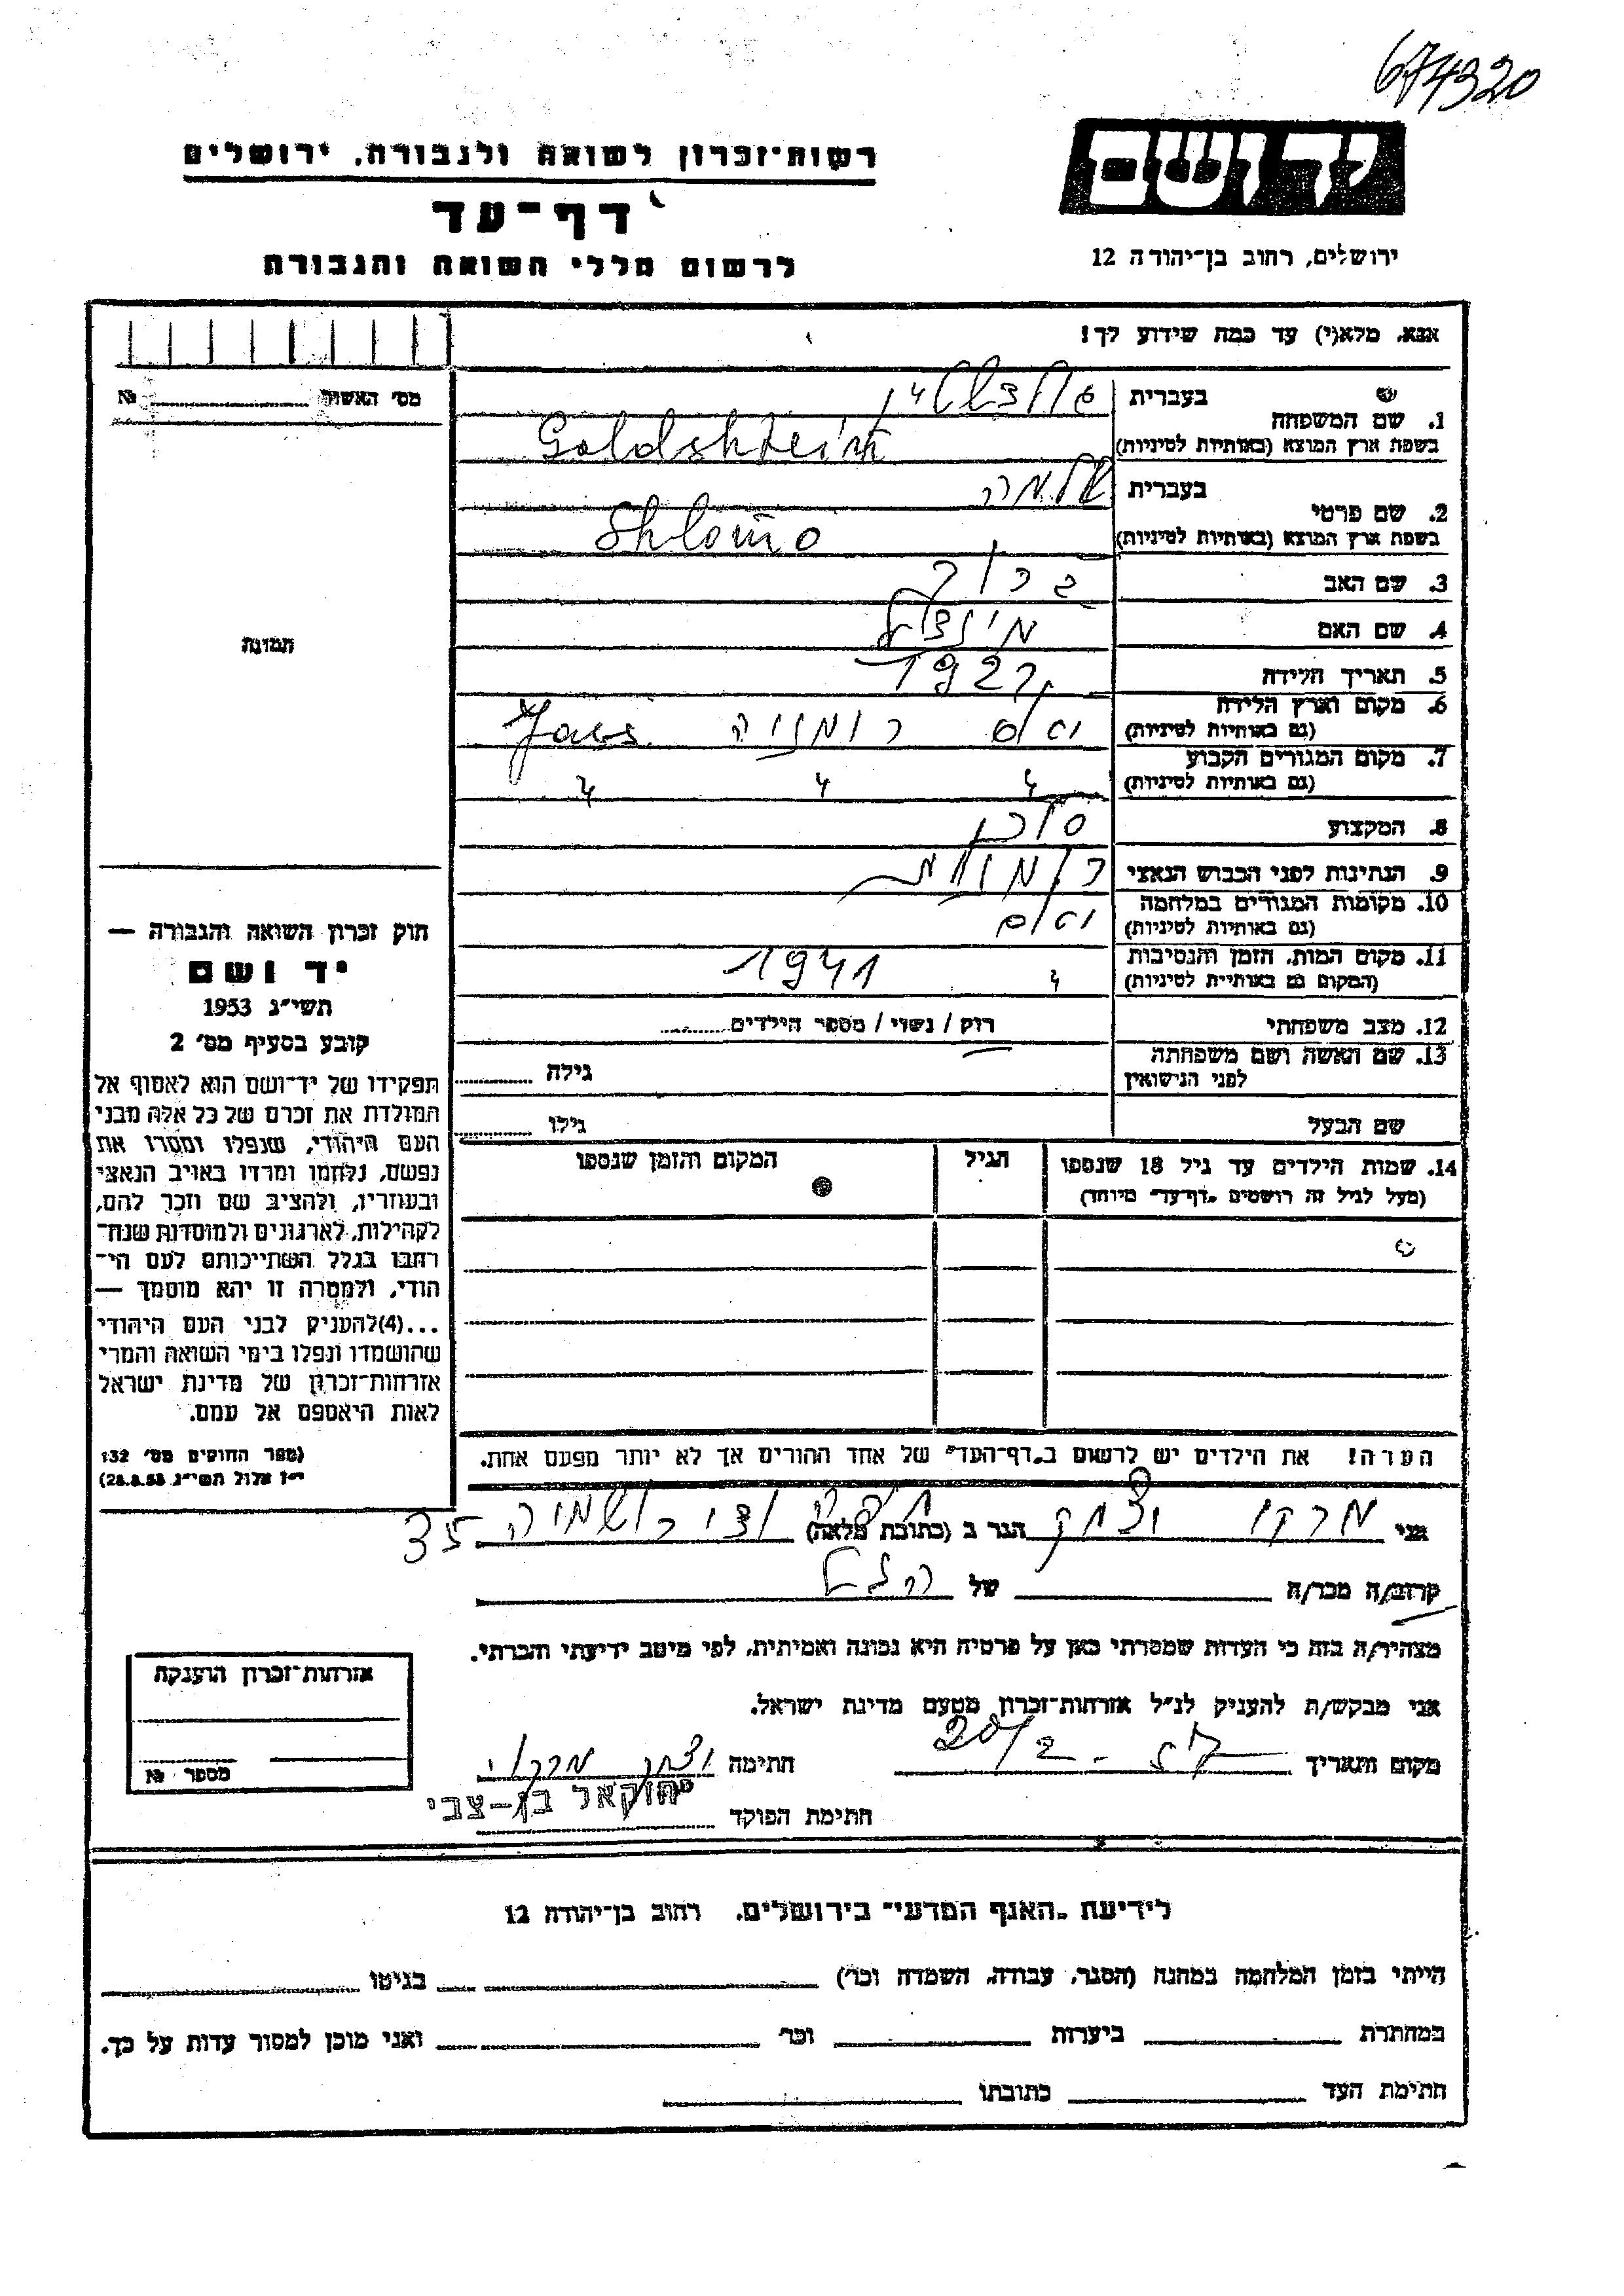 674320
יד ושם
ירושלים, רחוב בן־יהודה 12
רשות־זכרון לשואה ולגבורה, ירושלים
דף־עד
לרשום חללי השואה והגבורה
אנא, מלא(י) עד כמה שידוע לך!
מס׳ האשור № 
1. שם המשפחה
בעברית גולדשטיין
בשפת ארץ המוצא (באותיות לטיניות) Goldshtein
2. שם פרטי
בעברית שלמה
בשפת ארץ המוצא (באותיות לטיניות) Shlomo
3. שם האב ברוך
4. שם האם
5. תאריך הלידה 1927
6. מקום וארץ הלידה
(גם באותיות לטיניות) רומניה
7. מקום המגורים הקבוע
(גם באותיות לטיניות) " " "
8. המקצוע סוכן
9. הנתינות לפני הכבוש הנאצי רומנית
10. מקומות המגורים במלחמה
(גם באותיות לטיניות)
11. מקום המות, הזמן והנסיבות
(המקום גם באותיות לטיניות) " 1941
12. מצב משפחתי רוק / נשוי / מספר הילדים
13. שם האשה ושם משפחתה
לפני הנישואין גילה
שם הבעל גילו
14. שמות הילדים עד גיל 18 שנספו
(מעל לגיל זה רושמים „דף־עד״ מיוחד)
הגיל
המקום והזמן שנספו
הערה! את הילדים יש לרשום ב„דף־העד״ של אחד ההורים אך לא יותר מפעם אחת.
תמונה
חוק זכרון השואה והגבורה —
יד ושם
תשי״ג 1953
קובע בסעיף מס׳ 2
תפקידו של יד־ושם הוא לאסוף אל
המולדת את זכרם של כל אלה מבני
העם היהודי, שנפלו ומסרו את
נפשם, נלחמו ומרדו באויב הנאצי
ובעוזריו, ולהציב שם וזכר להם,
לקהילות, לארגונים ולמוסדות שנח־
רבו בגלל השתייכותם לעם הי־
הודי, ולמטרה זו יהא מוסמך —
...(4) להעניק לבני העם היהודי
שהושמדו ונפלו בימי השואה והמרי
אזרחות־זכרון של מדינת ישראל
לאות היאספם אל עמם.
(ספר החוקים מס׳ 132
י״ז אלול תשי״ג 28.8.53)
אני מרקו יצחק הגר ב (כתובת מלאה) חיפה ואדי רושמיה 35
קרוב/ה מכר/ה של הנ״ל
מצהיר/ה בזה כי העדות שמסרתי כאן על פרטיה היא נכונה ואמיתית, לפי מיטב ידיעתי והכרתי.
אני מבקש/ת להעניק לנ״ל אזרחות־זכרון מטעם מדינת ישראל.
מקום ותאריך 20/2 - 57 חתימה יצחק מרקו
חתימת הפוקד יחזקאל בן-צבי
אזרחות־זכרון הוענקה
מספר №
לידיעת „האגף המדעי״ בירושלים, רחוב בן־יהודה 12
הייתי בזמן המלחמה במחנה (הסגר, עבודה, השמדה וכר׳) בגיטו
במחתרת ביערות וכר׳ ואני מוכן למסור עדות על כך.
חתימת העד כתובתו